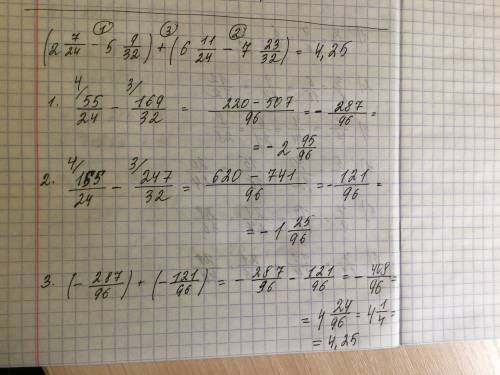 ① ③ ②
(2 7/24 - 5 9/32) + (6 11/24 - 7 23/32) = 4,25
1. 4/ 55/24 - 3/ 169/32 = (220 - 507)/96 = - 287/96 =
= - 2 95/96
2. 4/ 155/24 - 3/ 247/32 = (620 - 741)/96 = - 121/96 =
= - 1 25/96
3. (- 287/96) + (- 121/96) = - 287/96 - 121/96 = - 408/96 =
= 4 24/96 = 4 1/4 =
= 4,25